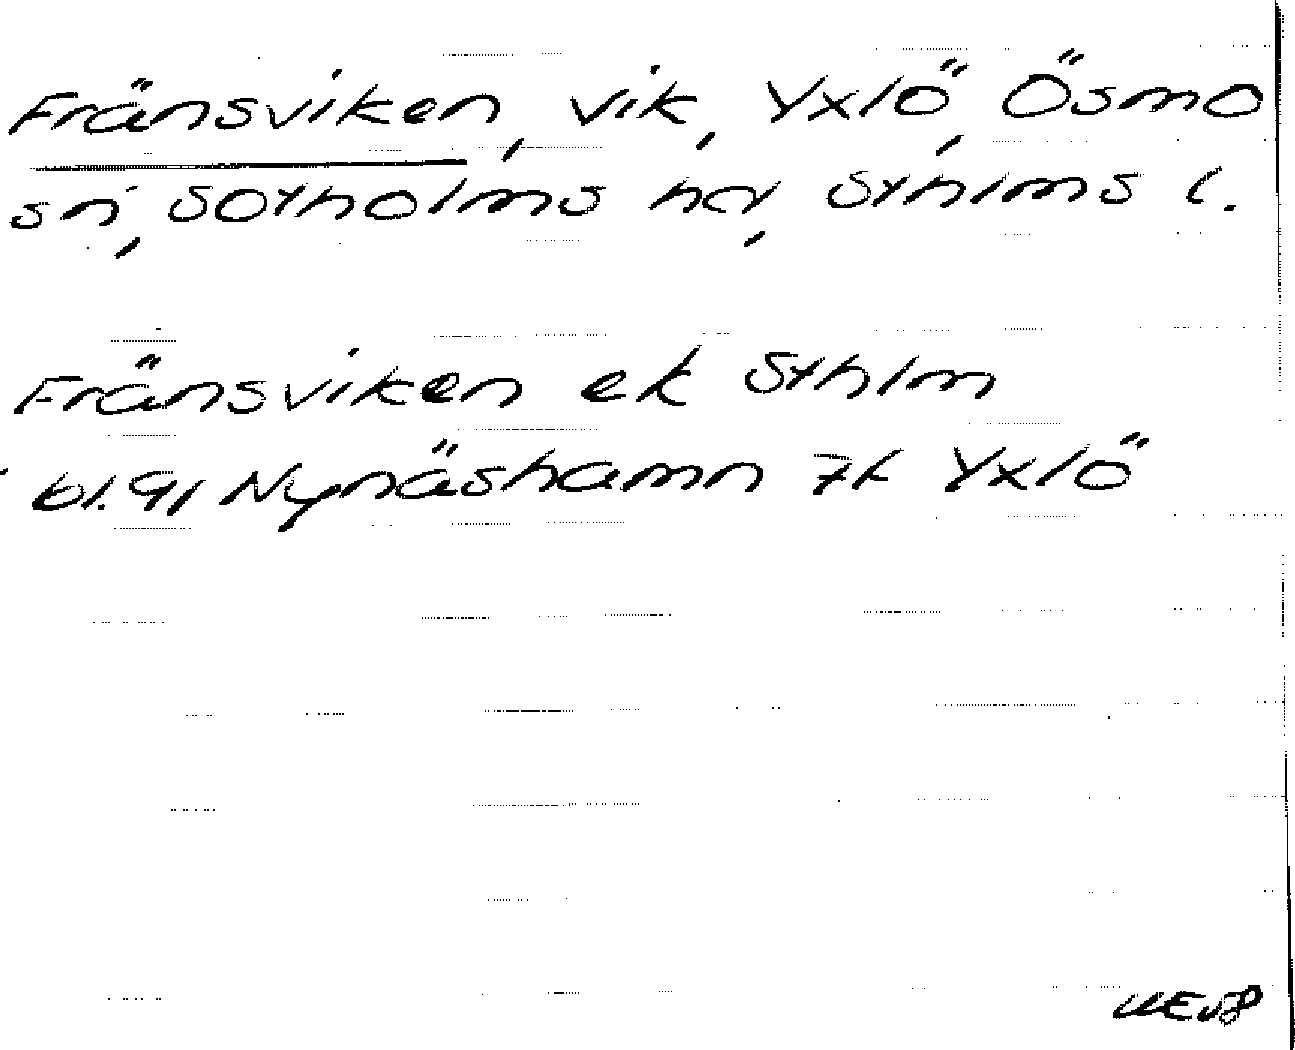 Fränsviken, vik, Yxlö, Ösmo
sn, Sotholms hd, Sthlms l.
Fränsviken ek Sthlm
bl. 91 Nynäshamn 7k Yxlö